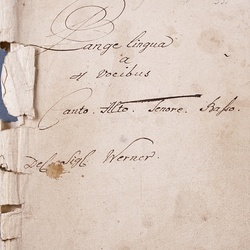 Pange lingua
a
4 Vocibus
Canto. Alto. Tenore. Basso.
Del Sigl. Werner.